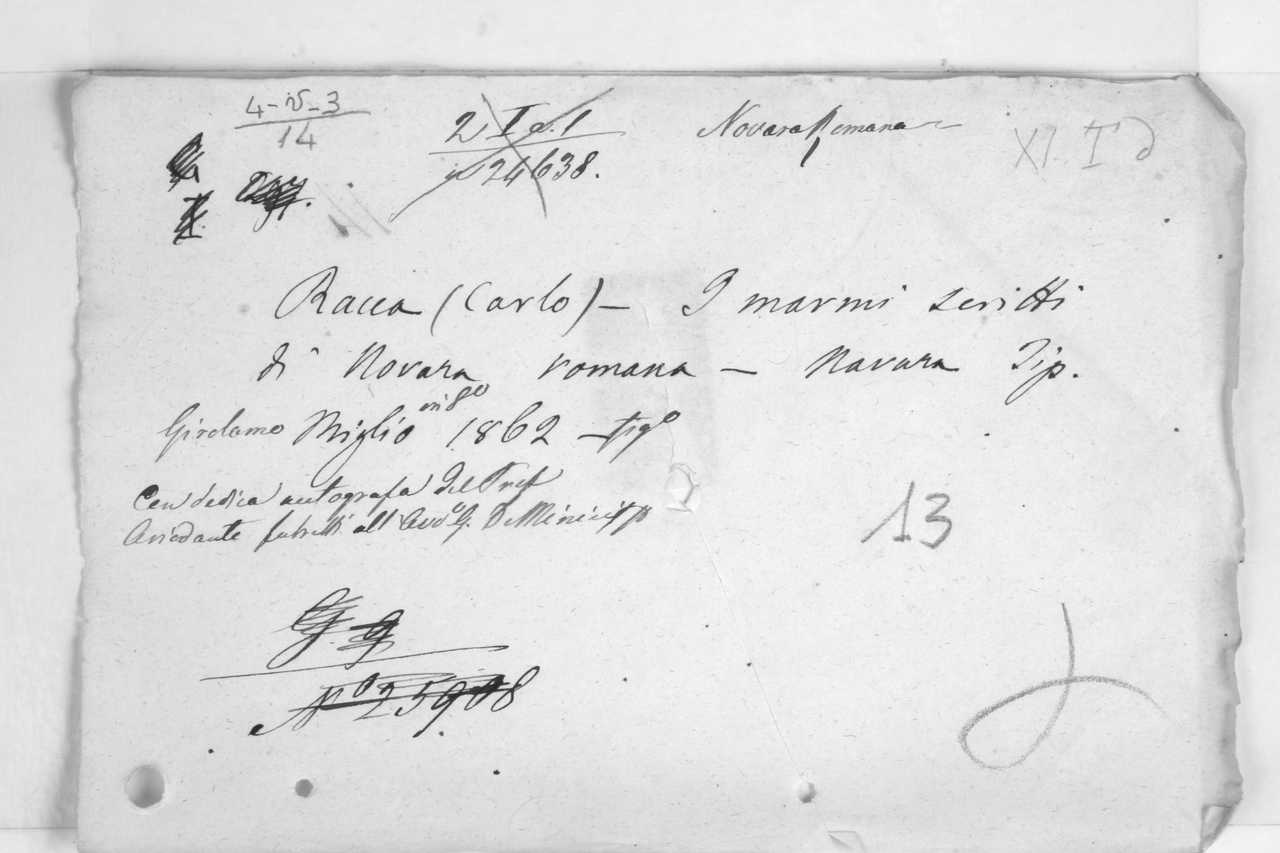 4-V-3
14
2 I a. 1
24638.
Novara Romana
XI. I
Racca (Carlo) — I marmi scritti
di Novara romana — Navara Tip.
Girolamo Miglio in 8º 1862 — figº
Con dedica autografa del Pref
Ariodante fabretti all' Avvº G. DeMinicis
13
G. g
Nº 25908